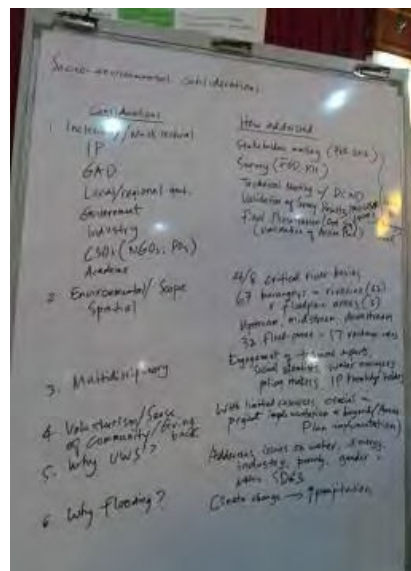 Socio-environmental considerations
Considerations
1. Inclusivity/Multisectoral
IP
GAD
Local/regional govt.
Government
Industry
CSOs (NGOs, POs)
Academe
2. Environmental/Scope
Spatial
3. Multidisciplinary
4. Volunteerism/Sense
of Community/Giving
back
5. Why UWS?
6. Why Flooding?
How addressed
Stakeholder meeting
Survey (FGD, KII)
Technical meeting w/
Validation of Survey Results
Final Presentation
(Validation of Action Plan)
4/8 critical river basins
67 barangays = riverine
floodplain areas
Upstream, midstream, downstream
32 flood-prone
Engagement of technical experts,
social scientists, water managers,
policy makers, IP knowledge holders
With limited resources, crucial in
project implementation & beyond
Plan implementation)
Addresses issues on water, energy,
industry, poverty, gender
SDGs
Climate change → ↑ precipitation